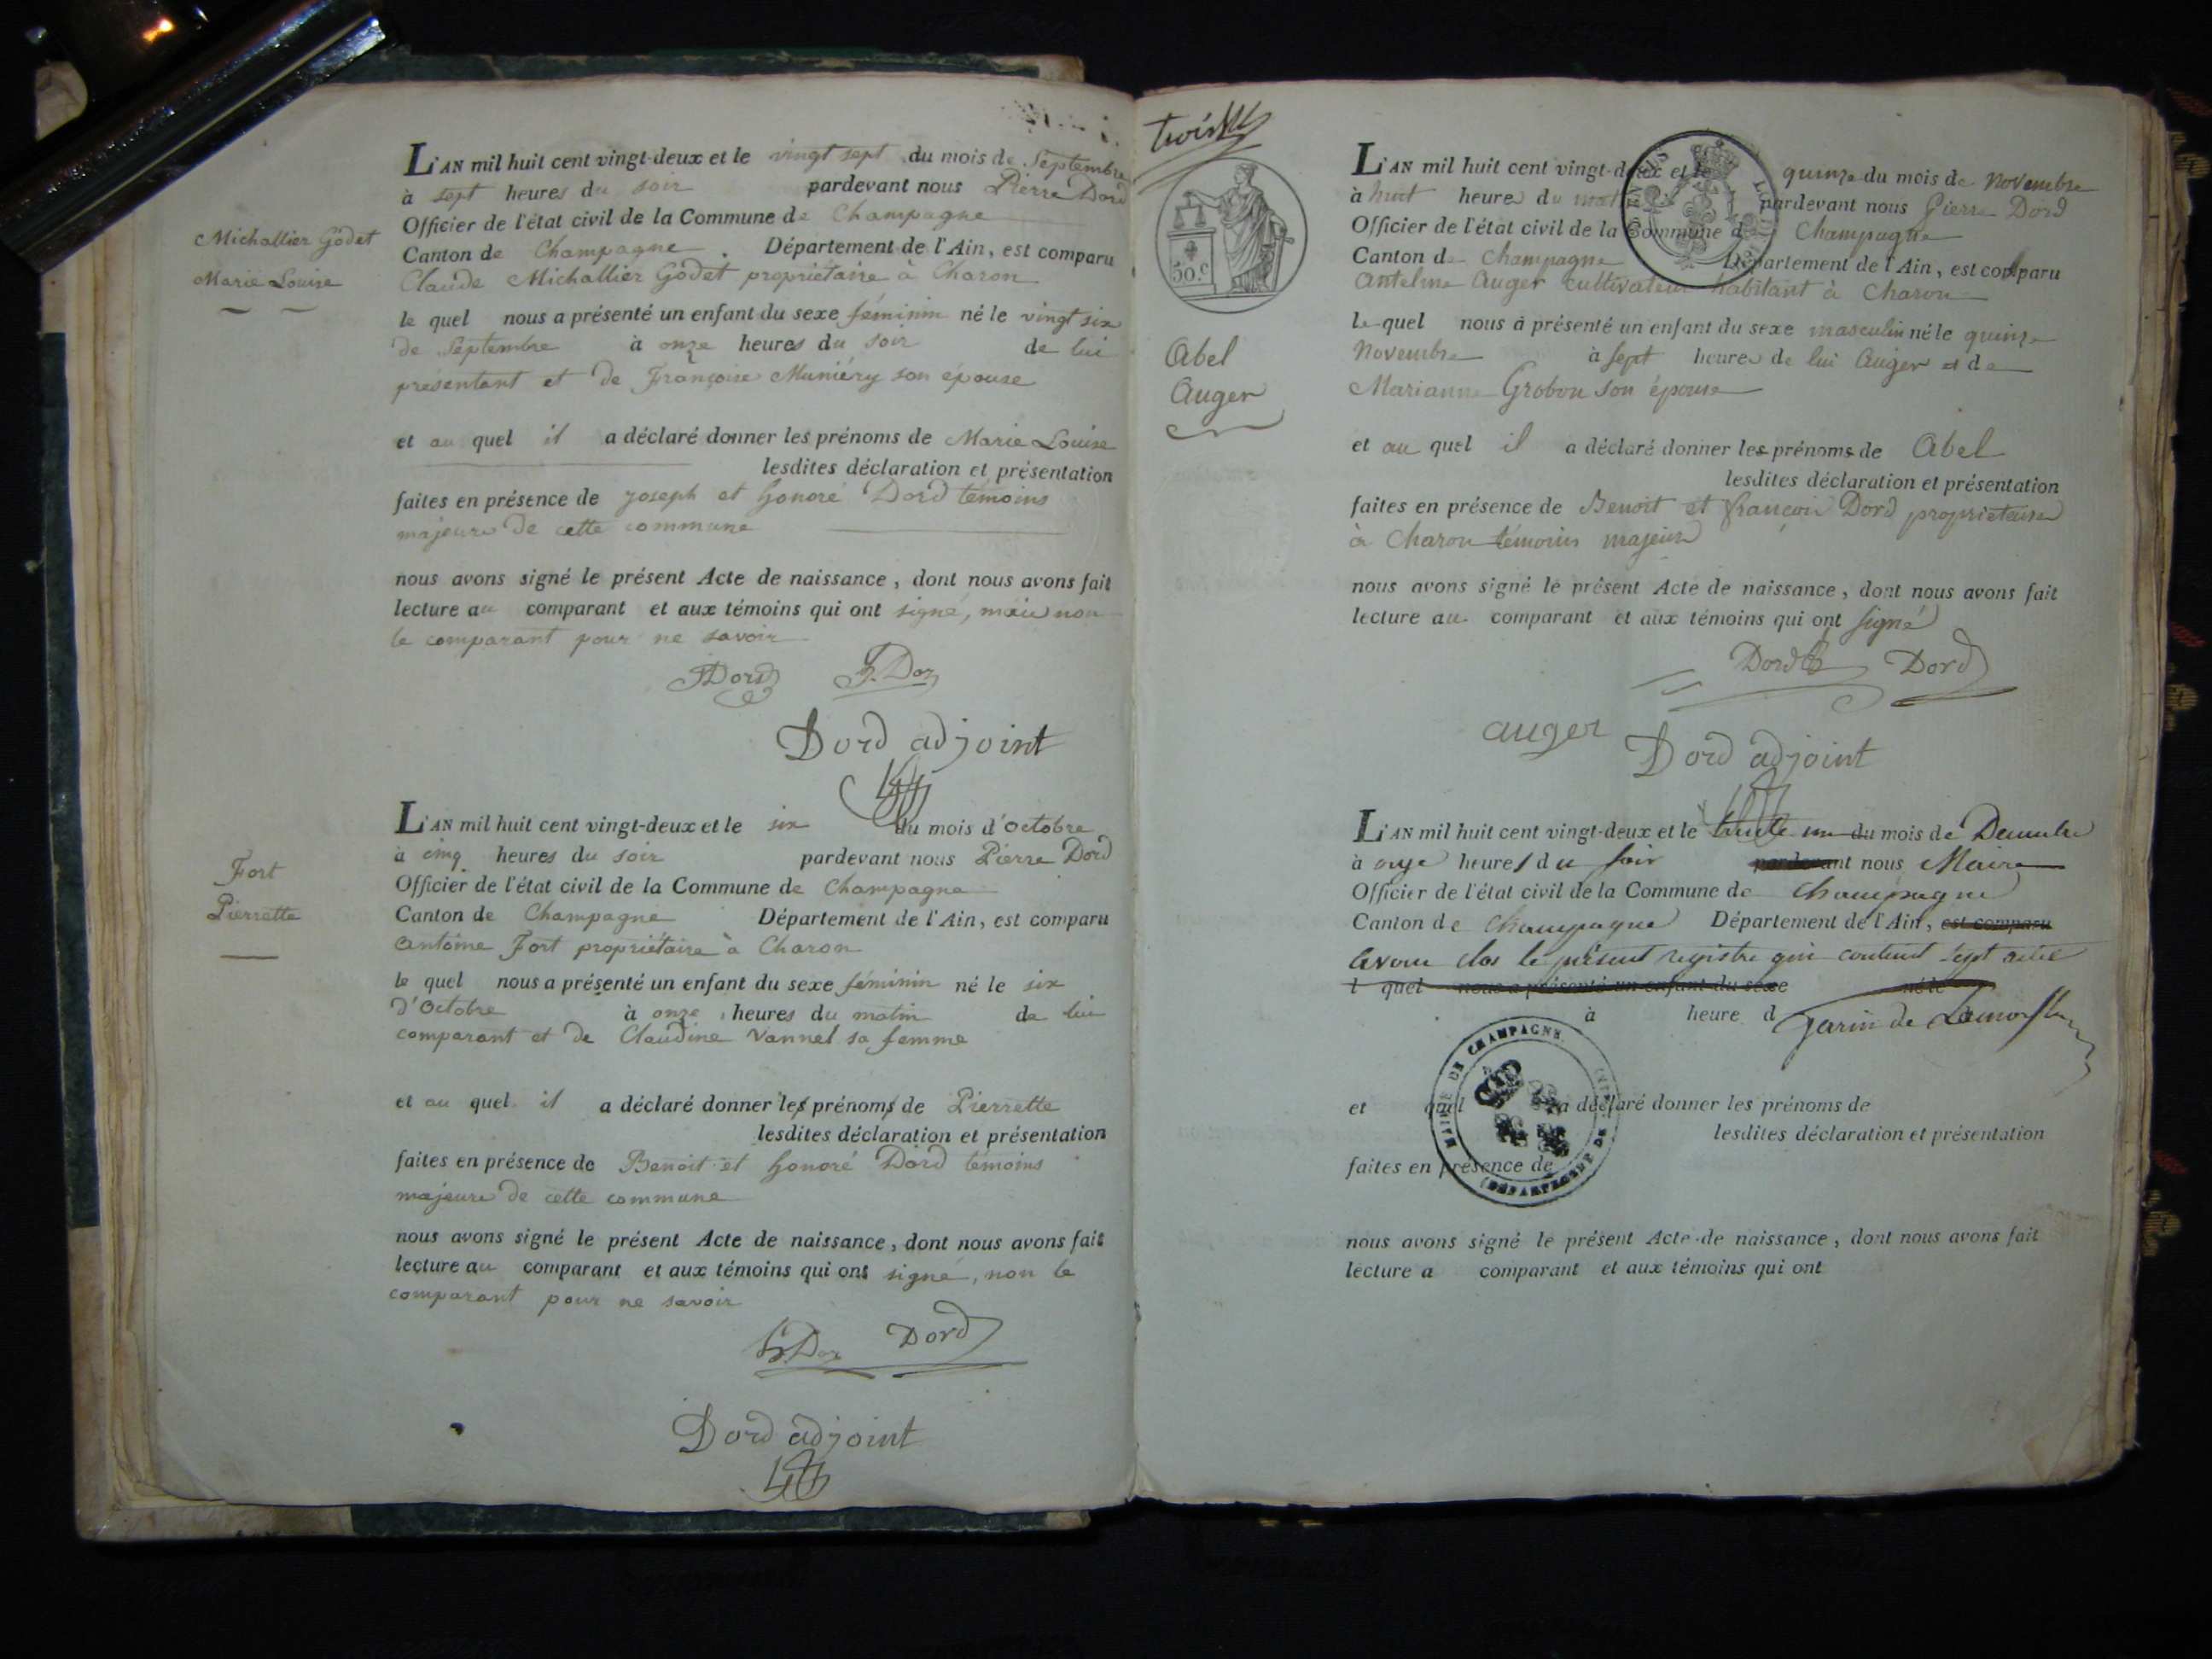 Michallier Godet
Marie Louise
L'AN mil huit cent vingt-deux et le vingt sept du mois de Septembre
à sept heures du soir pardevant nous Pierre Dord
Officier de l'état civil de la Commune de Champagne
Canton de Champagne. Département de l'Ain, est comparu
Claude Michallier Godet propriétaire à Charon
le quel nous a présenté un enfant du sexe féminin né le vingt six
de Septembre à onze heures du soir de lui
présentant et de Françoise Muniéry son épouse
et au quel il a déclaré donner les prénoms de Marie Louise
lesdites déclaration et présentation
faites en présence de Joseph et honoré Dord témoins
majeurs de cette commune
nous avons signé le présent Acte de naissance, dont nous avons fait
lecture au comparant et aux témoins qui ont signé, mais non
le comparant pour ne savoir
JDord h. Dor
Dord adjoint
Fort
Pierrette
L'AN mil huit cent vingt-deux et le six du mois d'Octobre
à cinq heures du soir pardevant nous Pierre Dord
Officier de l'état civil de la Commune de Champagne
Canton de Champagne Département de l'Ain, est comparu
antoine Fort propriétaire à Charon
le quel nous a présenté un enfant du sexe féminin né le six
d'Octobre à onze heures du matin de lui
comparant et de Claudine Vannel sa femme
et au quel il a déclaré donner les prénoms de Pierrette
lesdites déclaration et présentation
faites en présence de Benoit et honoré Dord témoins
majeurs de cette commune
nous avons signé le présent Acte de naissance, dont nous avons fait
lecture au comparant et aux témoins qui ont signé, non le
comparant pour ne savoir
h. Dor Dord
Dord adjoint
trois
50.c
Abel
Auger
L'AN mil huit cent vingt-deux et le quinze du mois de Novembre
à huit heures du matin pardevant nous Pierre Dord
Officier de l'état civil de la Commune de Champagne
Canton de Champagne Département de l'Ain, est comparu
antelme Auger cultivateur habitant à Charon
le quel nous a présenté un enfant du sexe masculin né le quinze
Novembre à sept heures de lui Auger et de
Marianne Grobon son épouse
et au quel il a déclaré donner les prénoms de Abel
lesdites déclaration et présentation
faites en présence de Benoit et françois Dord proprietaires
à Charon témoins majeurs
nous avons signé le présent Acte de naissance, dont nous avons fait
lecture au comparant et aux témoins qui ont signé
Dord B Dord
auger
Dord adjoint
L'AN mil huit cent vingt-deux et le trente un du mois de Decembre
à onze heures du soir pardevant nous Maire
Officier de l'état civil de la Commune de Champagne
Canton de Champagne Département de l'Ain, est comparu
avons clos le présent registre qui contient sept actes
l quel nous a présenté un enfant du sexe né le
à heure d garin de
MAIRIE DE CHAMPAGNE
(DÉPARTEMENT DE L'AIN)
et quel a déclaré donner les prénoms de
lesdites déclaration et présentation
faites en présence de
nous avons signé le présent Acte de naissance, dont nous avons fait
lecture a comparant et aux témoins qui ont